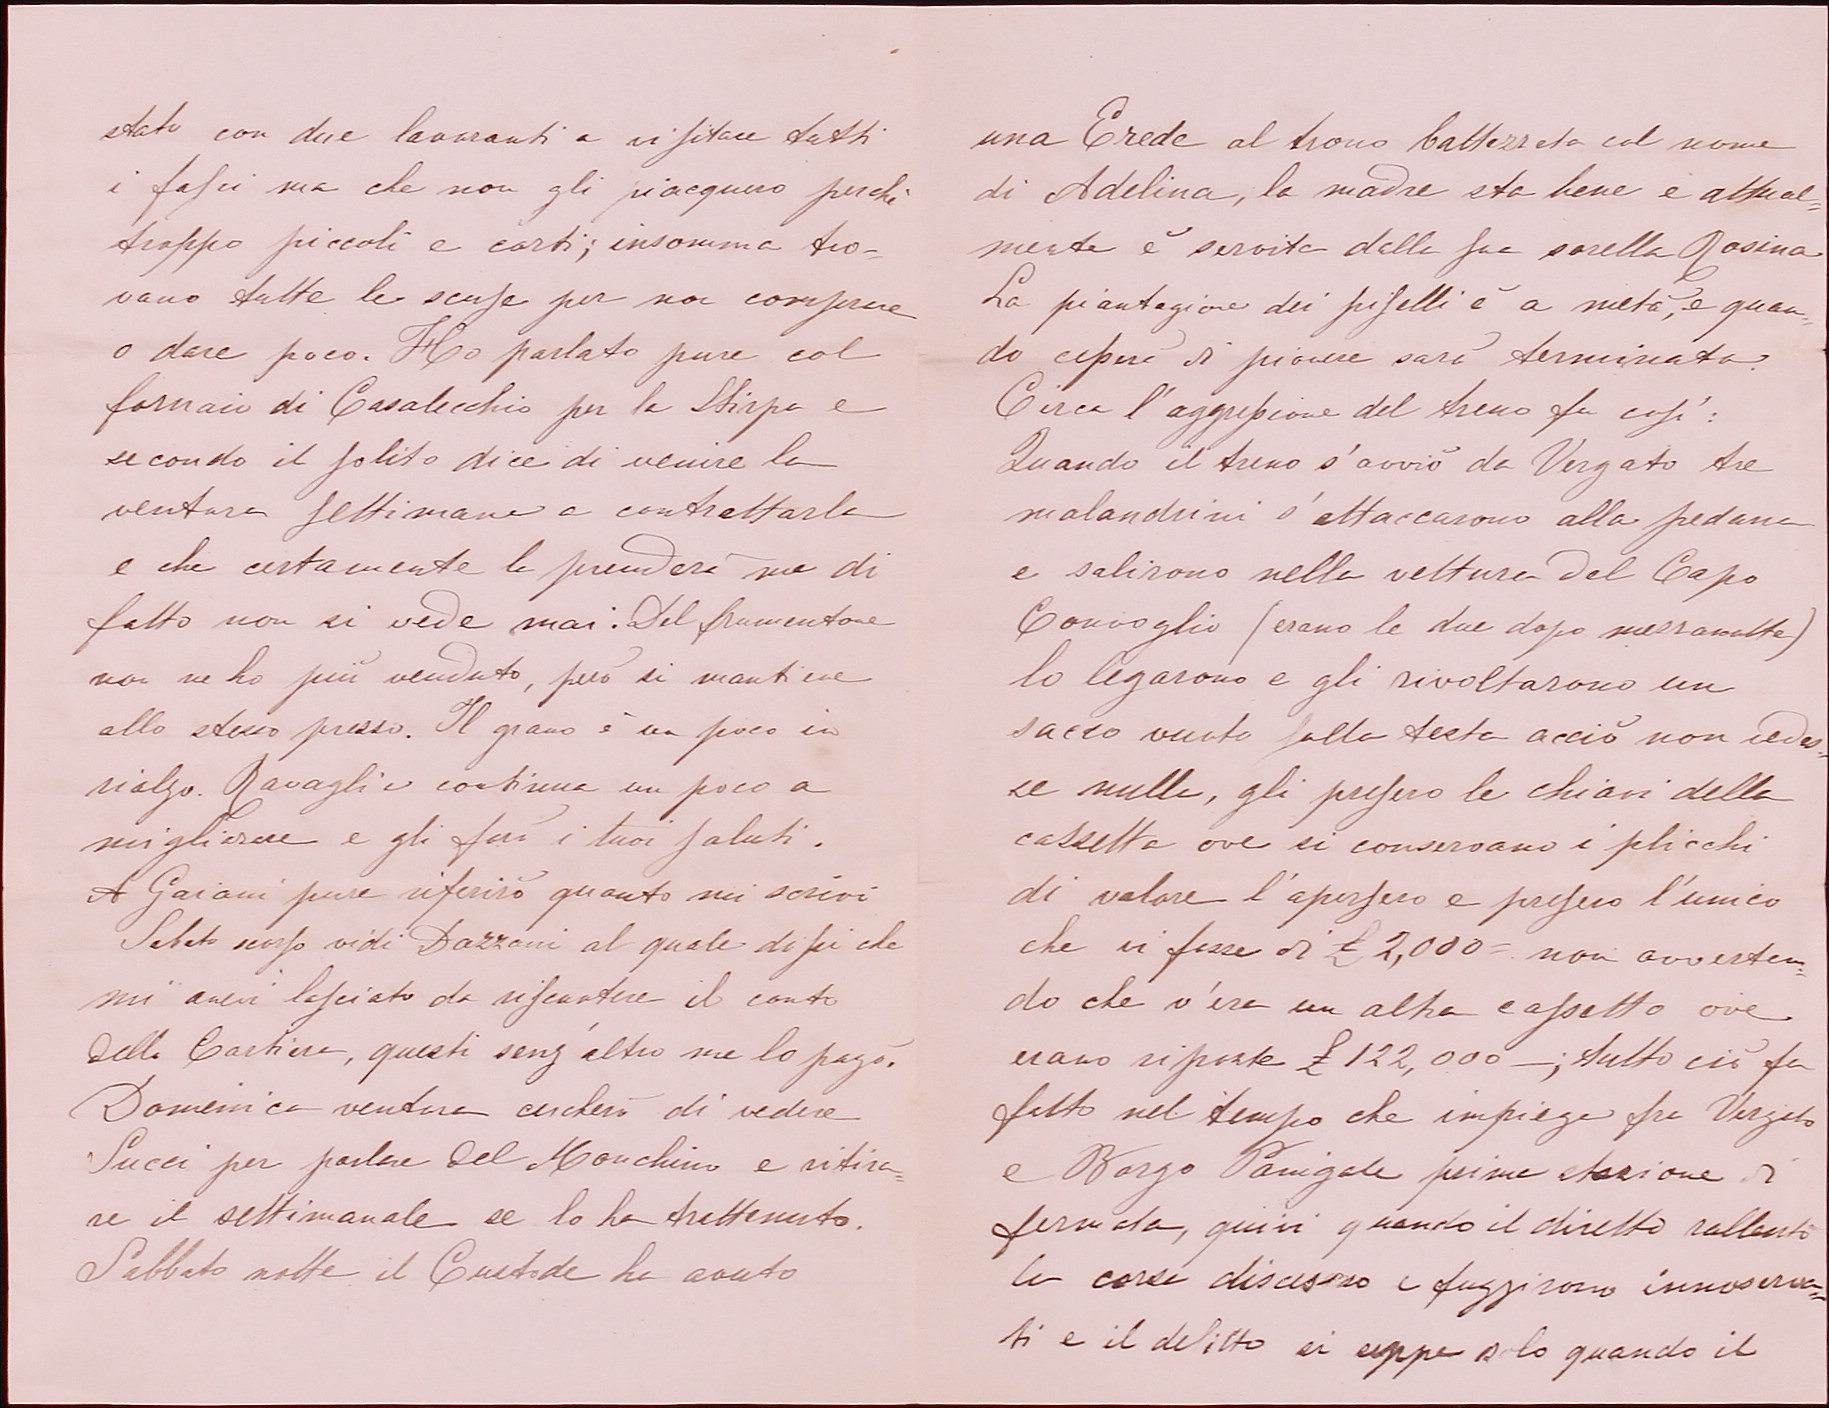 stato con due lavoranti a visitare tutti
i fasci ma che non gli piacquero perchè
troppo piccoli e corti; insomma tro=
vano tutte le scuse per non comprare
o dare poco. Ho parlato pure col
fornaio di Casalecchio per la Stirpa e
secondo il solito dice di venire la
ventura settimana a contrattarla
e che certamente la prenderà ma di
fatto non si vede mai. Del frumentone
non ne ho più venduto, però si mantiene
allo stesso prezzo. Il grano è un poco in
rialzo. Ravaglia continua un poco a
migliorare e gli farò i tuoi saluti.
A Gaiani pure riferirò quanto mi scrivi
Sabato scorso vidi Dazzani al quale dissi che
mi avevi lasciato da riscuotere il conto
della Cartiera, questi senz'altro me lo pagò.
Domenica ventura cercherò di vedere
Succi per parlare del Monchino e ritira=
re il settimanale se lo ha trattenuto.
Sabbato notte il Custode ha avuto
una Erede al trono battezzata col nome
di Adelina, la madre sta bene e attual=
mente è servita dalla sua sorella Rosina
La piantagione dei piselli è a metà, e quan=
do cesserà di piovere sarà terminata.
Circa l'aggressione del treno fu così:
Quando il treno s'avviò da Vergato tre
malandrini s'attaccarono alla pedana
e salirono nella vettura del Capo
Convoglio (erano le due dopo mezzanotte)
lo legarono e gli rivoltarono un
sacco vuoto sulla testa acciò non vedes=
se nulla, gli presero le chiavi della
cassetta ove si conservano i plicchi
di valore l'apersero e presero l'unico
che vi fosse di £ 2,000= non avverten=
do che v'era un altra cassetto ove
erano riposte £ 122,000 —; tutto ciò fu
fatto nel tempo che impiega fra Vergato
e Borgo Panigale prima stazione di
fermata, quivi quando il diretto rallentò
la corsa discesero e fuggirono innoserva=
ti e il delitto si seppe solo quando il